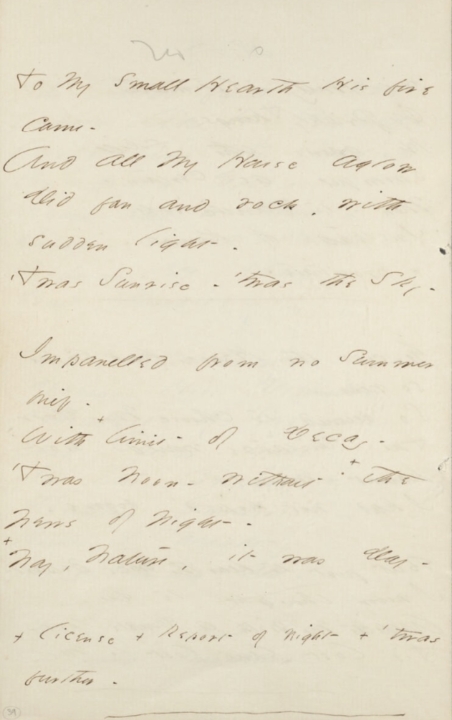 To my small Hearth His fire
came -
And all my House aglow
Did fan and rock, with
sudden light -
'Twas Sunrise - 'twas the Sky -
Impanelled from no Summer
brief -
With + limit of Decay -
'Twas Noon - without + the
News of Night -
+ Nay, Nature, it was Day -
+ License + Report of Night + 'twas
further -